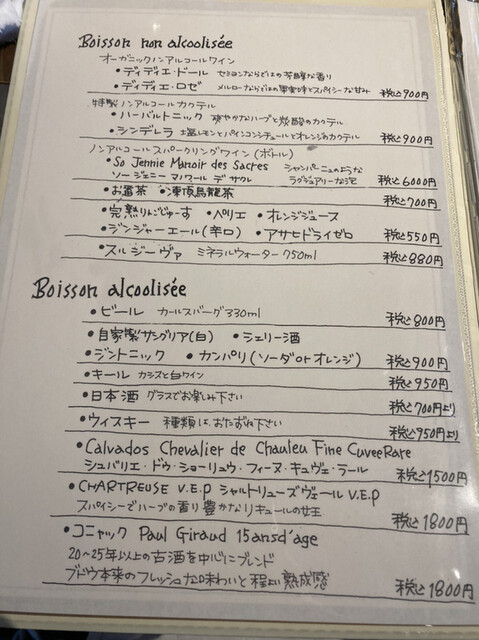 Boisson non alcoolisée
オーガニックノンアルコールワイン
・ディディエ・ドール セミヨンならではの芳醇な香り
・ディディエ・ロゼ メルローならではの果実味とスパイシーな甘み 税込900円
特製ノンアルコールカクテル
・ハーバルトニック 爽やかなハーブと炭酸のカクテル
・シンデレラ 塩レモンとパインコンジチュールとオレンジのカクテル 税込900円
ノンアルコールスパークリングワイン(ボトル)
・So Jennie Manoir des Sacres シャンパーニュのような
ソー ジェニー マノワール デ サクレ ラグジュアリーな泡 税込6000円
・お番茶 ・凍頂烏龍茶 税込700円
・完熟りんごじゅーす ・ペリエ ・オレンジジュース
・ジンジャーエール(辛口) ・アサヒドライゼロ 税込550円
・スルジーヴァ ミネラルウォーター 750ml 税込880円
Boisson alcoolisée
・ビール カールスバーグ330ml 税込800円
・自家製サングリア(白) ・シェリー酒
・ジントニック ・カンパリ(ソーダorオレンジ) 税込900円
・キール カシスと白ワイン 税込950円
・日本酒 グラスでお楽しみ下さい 税込700円より
・ウィスキー 種類は、おたずね下さい 税込950円より
・Calvados Chevalier de Chauleu Fine CuveeRare
シュバリエ・ドゥ・ショーリュウ・フィーヌ・キュヴェ・ラール 税込1500円
・CHARTREUSE V.E.P シャルトリューズヴェール V.E.P
スパイシーでハーブの香り豊かなリキュールの女王 税込1800円
・コニャック Paul Giraud 15ansd'age
20〜25年以上の古酒を中心にブレンド
ブドウ本来のフレッシュな味わいと程よい熟成感 税込1800円